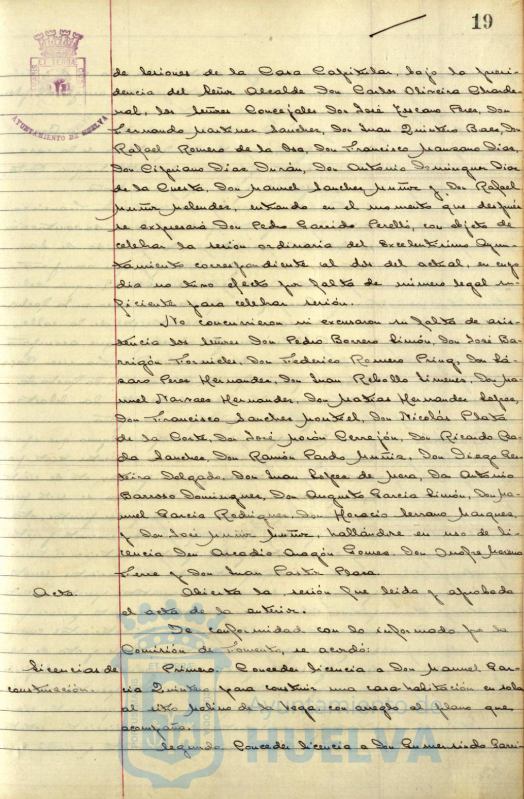 19
AYUNTAMIENTO DE HUELVA
de sesiones de la Casa Capitular, bajo la presi-
dencia del Señor Alcalde Don Carlos Oliveira Charde-
nal, los Señores Concejales Don José Lozano Pérez, Don
Fernando Martinez Sanchez, Don Juan Quintero Baez, Don
Rafael Romero de la Osa, Don Francisco Manzano Diaz,
Don Cipriano Diaz Durán, Don Antonio Dominguez Diaz
de la Cuesta, Don Manuel Sanchez Muñoz y Don Rafael
Muñoz Melendez, entrando en el momento que después
se expresará Don Pedro Garrido Perelló, con objeto de
celebrar la sesión ordinaria del Excelentisimo Ayun-
tamiento correspondiente al dos del actual, en cuyo
dia no tuvo efecto por falta de número legal su-
ficiente para celebrar sesión.
No concurrieron ni excusaron su falta de asis-
tencia los señores Don Pedro Borrero Limón, Don José Ba-
rrigón Fornieles, Don Federico Romero Don Lá-
zaro Perez Hernandez, Don Juan Rebollo Jimenez, Don Ma-
nuel Narvaez Hernandez, Don Matias Hernandez Lopez,
Don Francisco Sanchez Montiel, Don Nicolás Plata
de la Corte, Don José Morón Cerrejón, Don Ricardo
Sanchez, Don Ramón Pardo Don Diego
Delgado, Don Juan Lopez de Mora, Don Antonio
Barroso Dominguez, Don Augusto Garcia Limón, Don Ma-
nuel Garcia Rodriguez, Don Horacio Serrano Marquez,
y Don José Muñoz Muñoz, hallándose en uso de li-
cencia Don Arcadio Aragón Gomez, Don Onofre Moreno
y Don Juan Pastor Plaza.
Acta. Abierta la sesión fue leida y aprobada
el acta de la anterior.
De conformidad con lo informado por la
Comisión de Fomento, se acordó:
Licencias de Primero. Conceder licencia a Don Manuel Gar-
construcción. cia Quintero para construir una casa habitación en solar
al sitio Molino de la Vega con arreglo al plano que
acompaña.
Segundo. Conceder licencia a Don Gumersindo Garri-
Ayuntamiento de
HUELVA